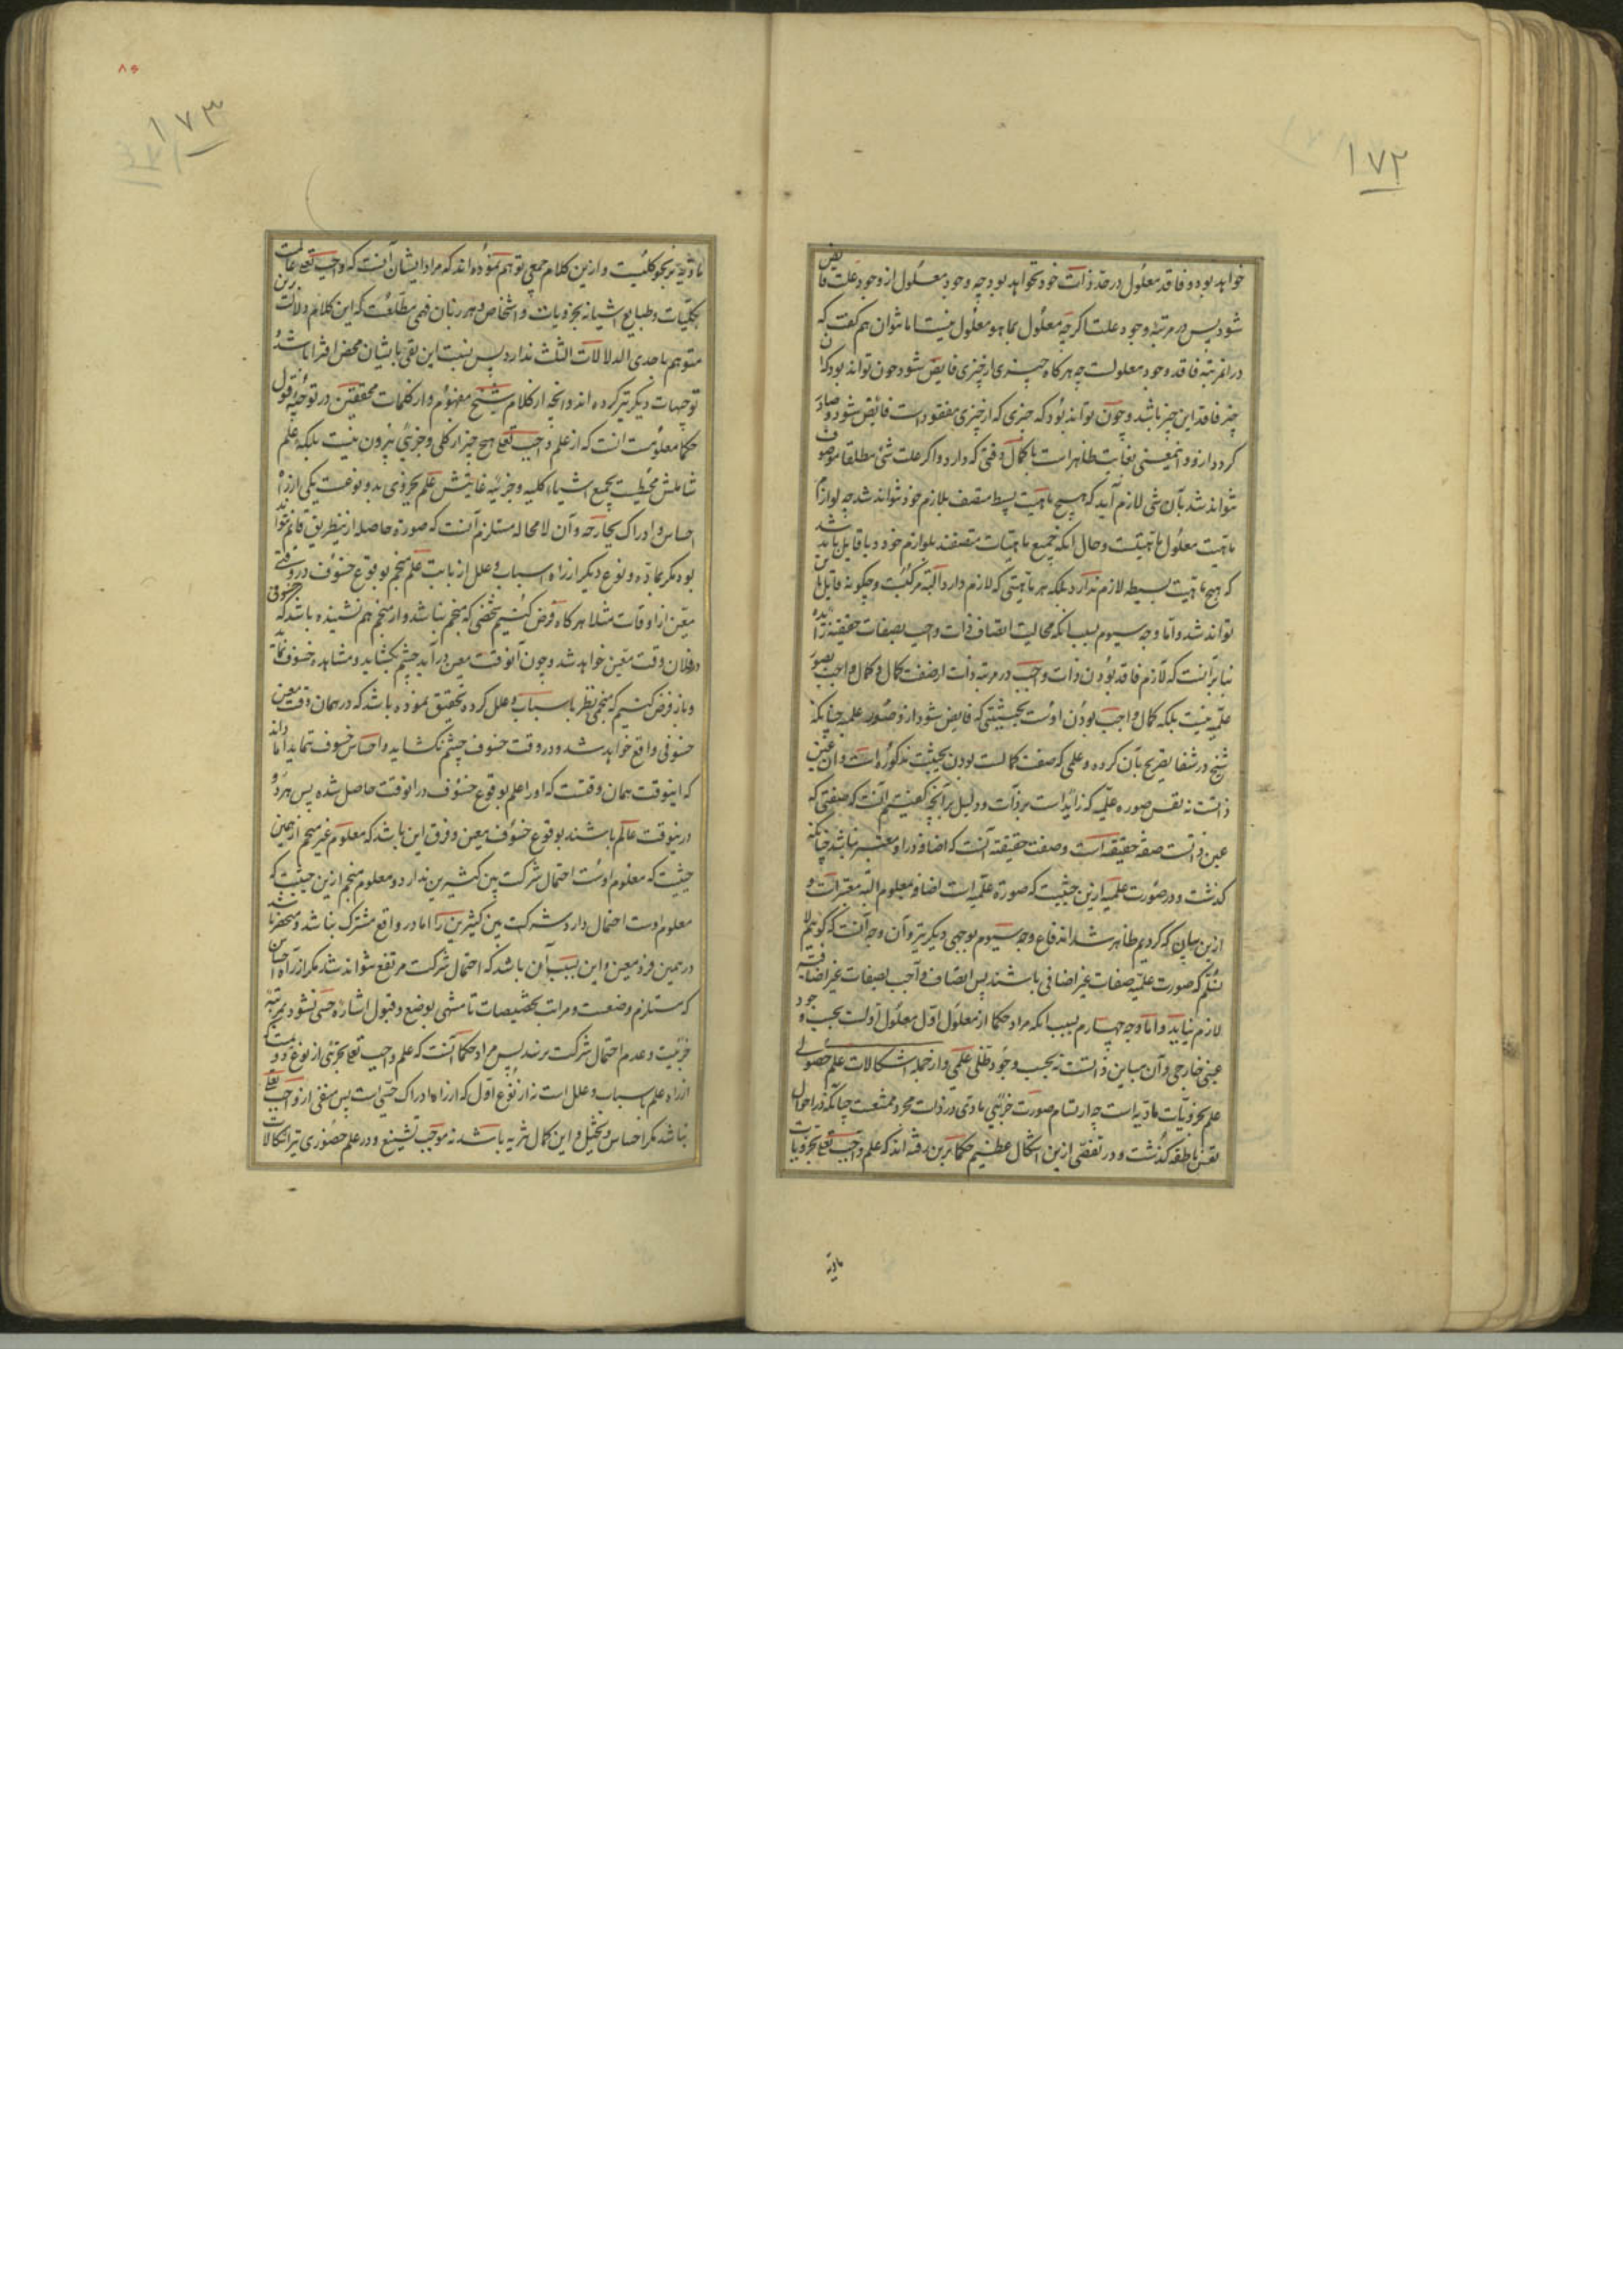 ١٧٢
خواهد بود و فاقد معلول در حدّ ذات خود نخواهد بود چه وجود معلول از وجود علت فایض
شود پس در مرتبهٔ وجود علت اگرچه معلول بما هو معلول نیست اما نتوان هم گفت که
در انمرتبه فاقد وجود معلولست چه هرگاه چیزی از چیزی فایض شود چون تواند بود که ان
چیز فاقد این چیز باشد و چون تواند بود که چیزی که از چیزی مفقود است فائض شود و صادر
گردد ازو و اینمعنی بغایت ظاهر است با کمال دقتی که دارد و اگر علت شئ مطلقا موصوف
نتواند شد بآن شی لازم آید که هیچ ماهیت بسیط متصف بلازم خود نتواند شد چه لوازم
ماهیت معلول ماهیتست و حال انکه جمیع ماهیات متصفند بلوازم خود و یا قایل باید شد
که هیچ ماهیت بسیطه لازم ندارد بلکه هر ماهیتی که لازم دارد البته مرکبست و چگونه قایل باین
تواند شد و اما وجه سیوم بسبب انکه محالیت اتصاف ذات واجب بصفات حقیقیه زایده
بنابرآنست که لازم فاقد بودن ذات واجب در مرتبه ذات از صفت کمال و کمال واجب بصور
علمیه نیست بلکه کمال واجب بودن اوست بحیثیتی که فایض شود ازو صور علمیه چنانکه
شیخ در شفا تصریح بآن کرده و علمی که صفت کمالست بودن بحیثیت مذکوره است و ان عین
ذاتست نه نفس صوره علمیه که زاید است بر ذات و دلیل بر آنچه گفتیم آنست که صفتی که
عین ذاتست صفة حقیقیه است و صفت حقیقیه آنست که اضافه در او معتبر نباشد چنانکه
گذشت و در صورت علمیه ازین حیثیت که صوره علمیه است اضافه بمعلوم البته معتبر است و
ازین بیان که کردیم ظاهر شد اندفاع وجه سیوم بوجهی دیگر نیز و آن وجه آنست که گوییم لا
نسلم که صورت علمیه صفات غیر اضافی باشند پس اتصاف واجب بصفات غیر اضافیه
لازم نیاید و اما وجه چهارم بسبب انکه مراد حکما از معلول اوّل معلول اولست بحسب وجود
عینی خارجی و آن مباین ذاتست نه بحسب وجود ظلی علمی و از جمله اشکالات علم حصولی
علم بجزویات مادیه است چه ارتسام صورت جزئی مادی در ذات مجرد ممتنعست چنانکه در احوال
نفس ناطقه گذشت و در تفصی ازین اشکال عظیم حکما برین رفته اند که علم واجب تعالی بجزویات
مادیه
١٧٣
٨٦
مادیه بر نحو کلیست و ازین کلام جمعی توهم نموده اند که مراد ایشان آنست که واجب تعالی عالمست
بکلیات و طبایع اشیا نه بجزویات و اشخاص و هر زبان فهمی مطلعست که این کلام دلالت برین
متوهم باحدی الدلالات الثلث ندارد پس نسبت این نفی بایشان محض افترا باشد و
توجیهات دیگر نیز کرده اند و انچه از کلام شیخ مفهوم و از کلمات محققین در توجیه قول
حکما معلومست انست که از علم واجب تعالی هیچ چیز از کلی و جزئی بیرون نیست بلکه علم
شاملش محیطست بجمیع اشیاء کلیه و جزئیه غایتش علم بجزوی بدو نوعست یکی از راه
احساس و ادراک بجارحه و آن لا محاله مستلزم آنست که صوره حاصله ازینطریق قائم نتواند
بود مگر بماده و نوع دیگر از راه اسباب و علل از بابت علم منجم بوقوع خسوف در وقتی
معین از اوقات مثلا هرگاه فرض کنیم شخصی که منجم نباشد و از منجم هم نشنیده باشد که خسوفی
در فلان وقت معین خواهد شد و چون آنوقت معین در آید چشم بگشاید و مشاهده خسوف نماید
و باز فرض کنیم که منجمی نظر باسباب و علل کرده تحقیق نموده باشد که در همان وقت معین
خسوفی واقع خواهد شد و در وقت خسوف چشم نگشاید و احساس خسوف ننماید اما داند
که اینوقت همان وقتست که او را علم بوقوع خسوف در انوقت حاصل شده پس هر دو
درینوقت عالم باشند بوقوع خسوف معین و فرق این باشد که معلوم غیر منجم ازین
حیثیت که معلوم اوست احتمال شرکت بین کثیرین ندارد و معلوم منجم ازین حیثیت که
معلوم اوست احتمال دارد شرکت بین کثیرین را اما در واقع مشترک نباشد و منحصر باشد
در همین فرد معین و این بسبب آن باشد که احتمال شرکت مرتفع نتواند شد مگر از راه احساس
که مستلزم وضعست و مراتب تخصیصات تا منتهی بوضع و قبول اشاره حسی نشود بمرتبه
جزئیت و عدم احتمال شرکت نرسد پس مراد حکما آنست که علم واجب تعالی بجزئی از نوع دویمست که
از راه علم باسباب و علل است نه از نوع اول که از راه ادراک حسی است پس منفی از واجب تعالی
نباشد مگر احساس و تخیل و این کمال تنزیه باشد نه موجب تشنیع و در علم حضوری نیز اشکالات